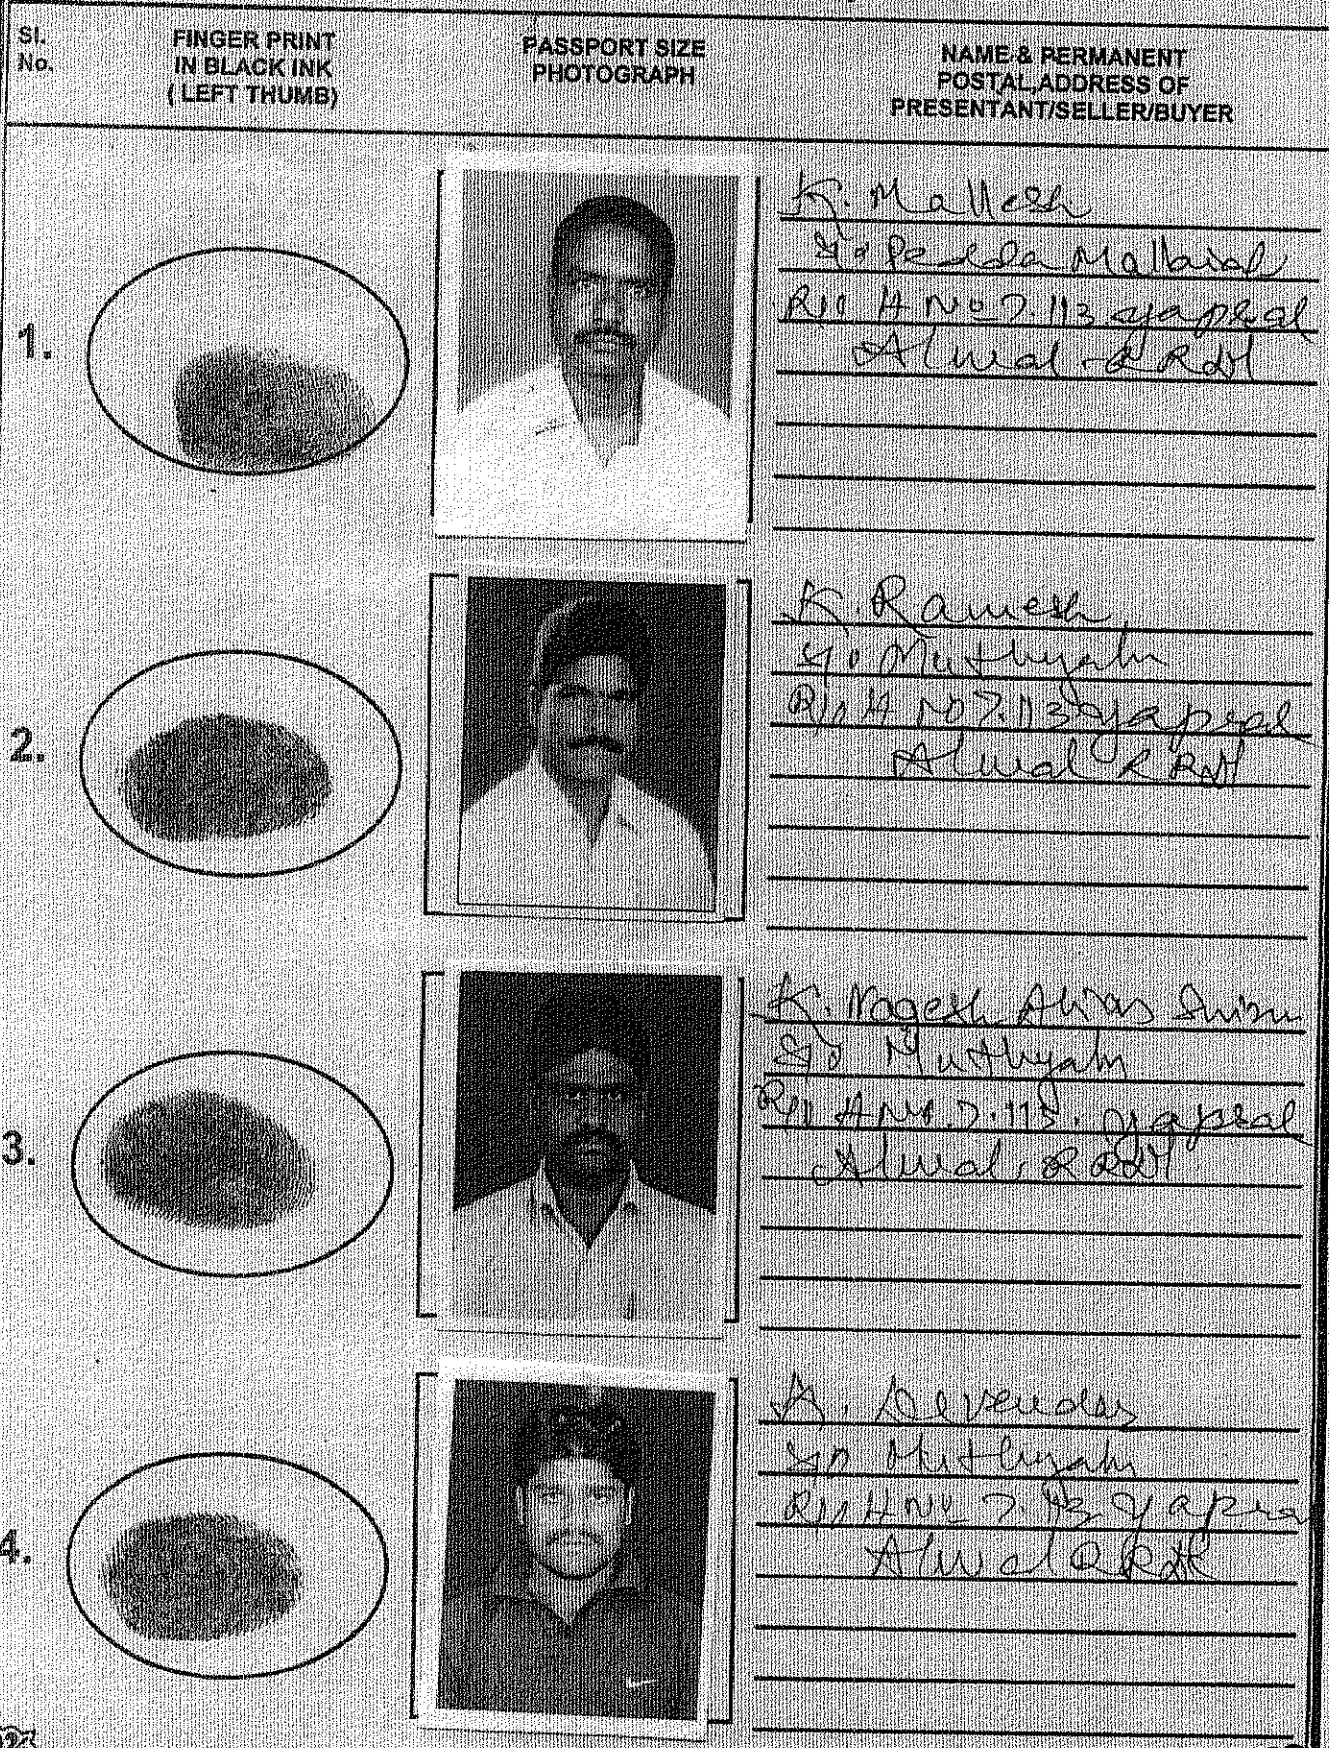 Sl.
No.
FINGER PRINT
IN BLACK INK
( LEFT THUMB)
PASSPORT SIZE
PHOTOGRAPH
NAME & PERMANENT
POSTAL ADDRESS OF
PRESENTANT/SELLER/BUYER
1.
K. Mallesh
S/o Pedda Mallaiah
R/o H No 7.113 yapral
Alwal RRDt
2.
K. Ramesh
S/o Muthyalu
R/o H No 7.113 yapral
Alwal R RDt
3.
K. Nagesh Alias
S/o Muthyalu
R/o H No. 7.113. yapral
Alwal. R RDt
4.
Devendas
S/o Muthyalu
R/o H No 7.113 yapra
Alwal R RDt